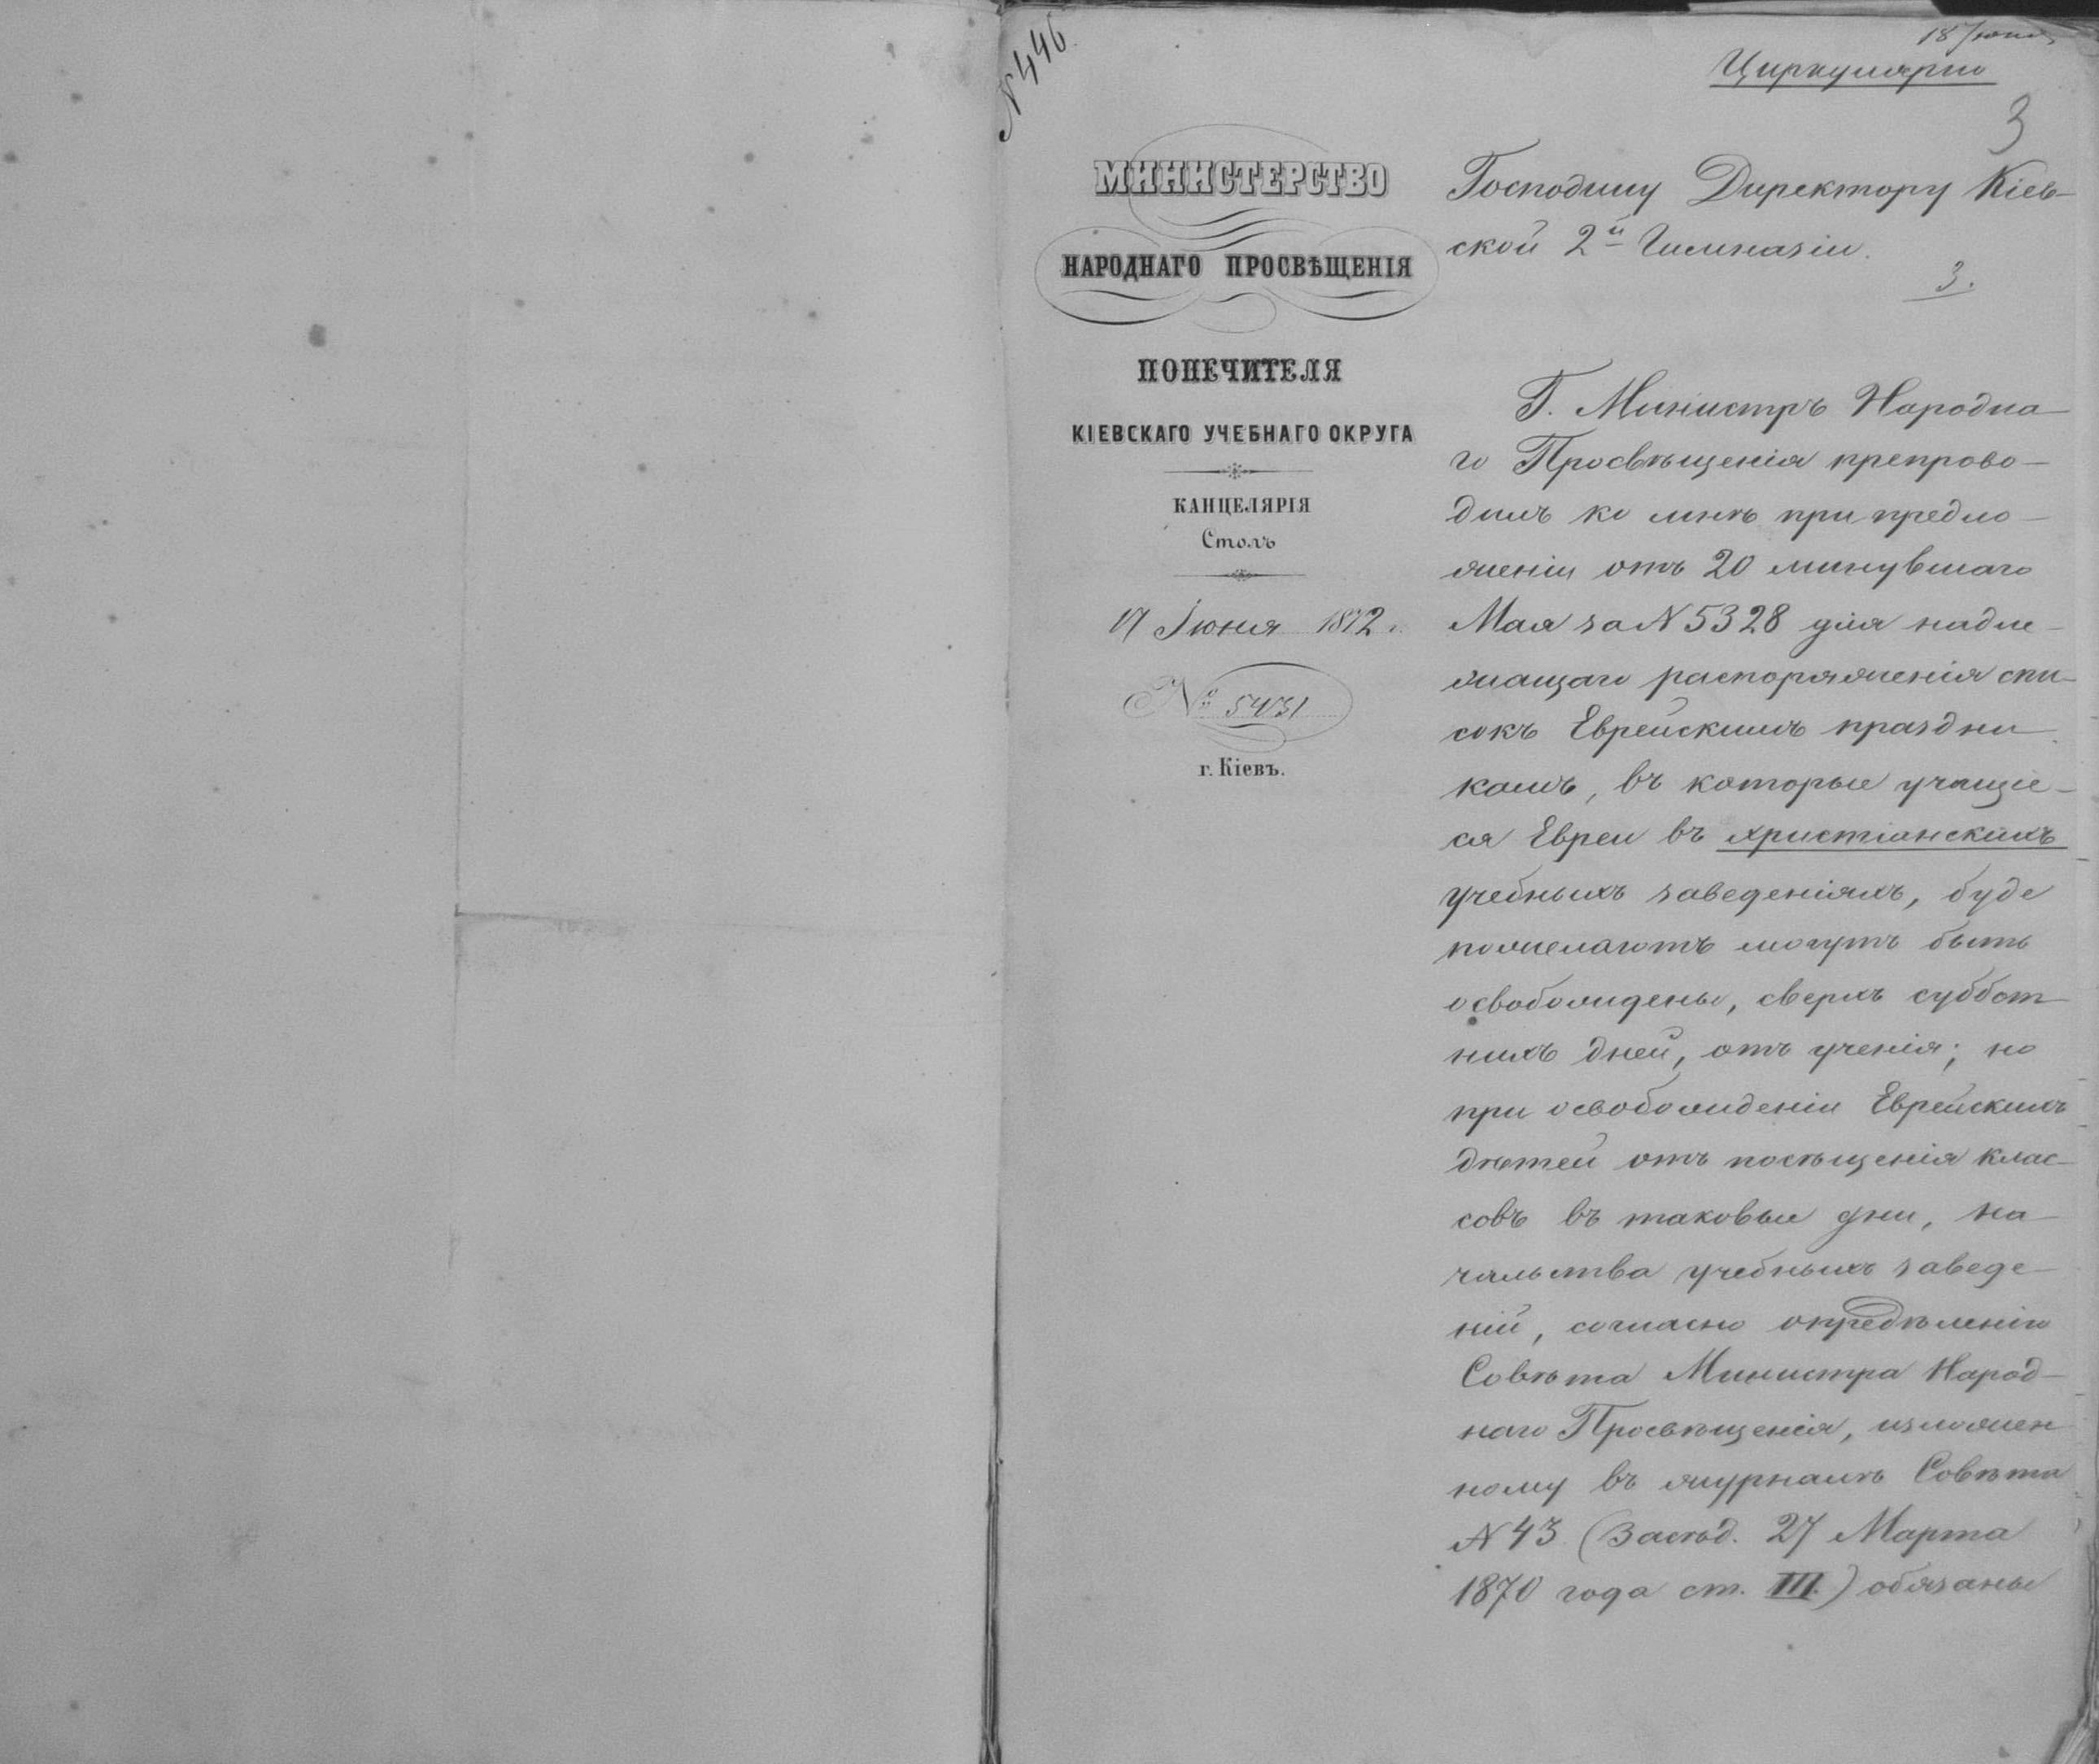 N 446
18 Іюня
Циркулярно
3
МИНИСТЕРСТВО
НАРОДНАГО ПРОСВѢЩЕНІЯ
ПОПЕЧИТЕЛЯ
КІЕВСКАГО УЧЕБНАГО ОКРУГА
КАНЦЕЛЯРІЯ
Столъ
17 Іюня 1872 г.
№ 5431
г. Кіевъ.
Господину Директору Кіев-
ской 2й Гимназіи.
3.
Г. Министръ Народна-
го Просвѣщенія препрово-
дилъ ко мнѣ при предло-
женіи отъ 20 минувшаго
Мая за N 5328 для надле-
жащаго распоряженія спи-
сокъ Еврейскимъ праздни-
камъ, въ которые учащіе-
ся Евреи въ христіанскихъ
учебныхъ заведеніяхъ, буде
пожелаютъ могутъ быть
освобождены, сверхъ суббот-
нихъ дней, отъ ученія; но
при освобожденіи Еврейскихъ
дѣтей отъ посѣщенія клас-
совъ въ таковые дни, на-
чальства учебныхъ заведе-
ній, согласно опредѣленію
Совѣта Министра Народ-
наго Просвѣщенія, изложен-
ному въ журналѣ Совѣта
N 43 (Засѣд. 27 Марта
1870 года ст. III.) обязаны